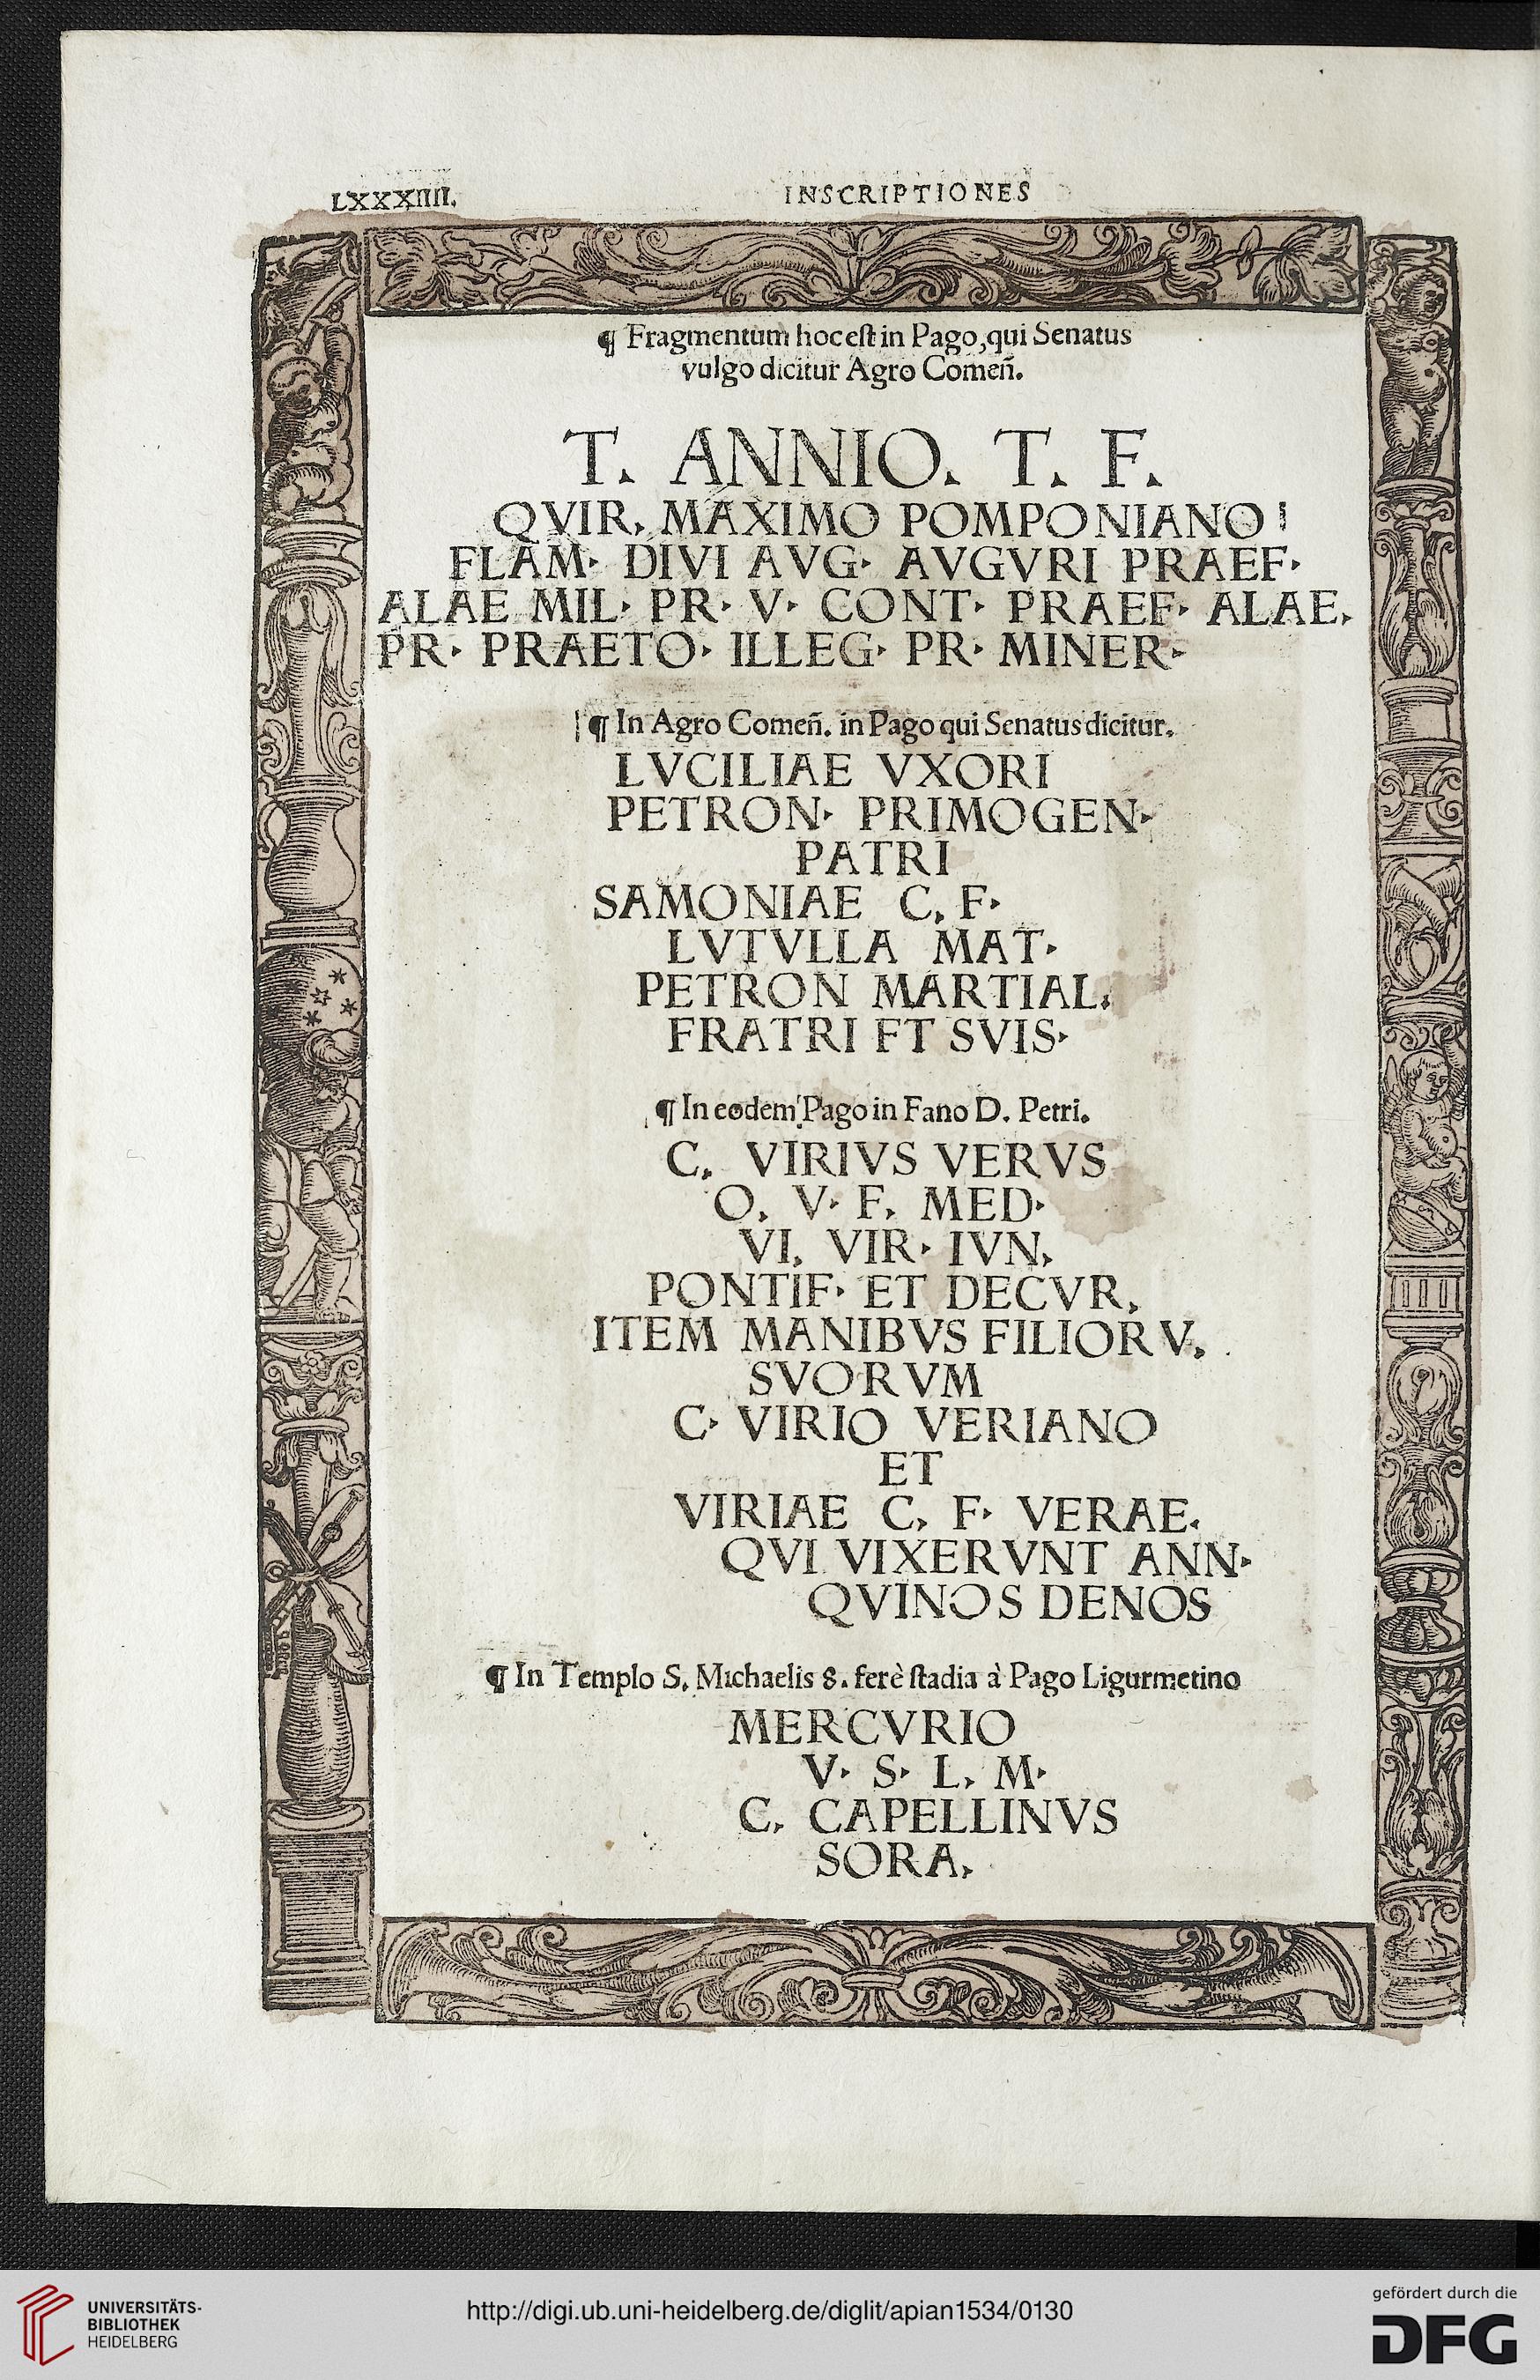 LXXXIIII.
INSCRIPTIONES
¶ Fragmentum hoc est in Pago, qui Senatus
vulgo dicitur Agro Comeñ.
T. ANNIO. T. F.
QVIR. MAXIMO POMPONIANO
FLAM· DIVI AVG· AVGVRI PRAEF·
ALAE MIL· PR· V· CONT· PRAEF· ALAE.
PR· PRAETO· ILLEG· PR· MINER·
¶ In Agro Comeñ. in Pago qui Senatus dicitur.
LVCILIAE VXORI
PETRON· PRIMOGEN·
PATRI
SAMONIAE C. F·
LVTVLLA MAT·
PETRON MARTIAL.
FRATRI FT SVIS·
¶ In eodem Pago in Fano D. Petri.
C. VIRIVS VERVS
O. V· F. MED·
VI. VIR· IVN.
PONTIF· ET DECVR.
ITEM MANIBVS FILIORV.
SVORVM
C· VIRIO VERIANO
ET
VIRIAE C. F· VERAE.
QVI VIXERVNT ANN·
QVINOS DENOS
¶ In Templo S. Michaelis 8. ferè stadia à Pago Ligurmetino
MERCVRIO
V· S· L. M·
C. CAPELLINVS
SORA.
UNIVERSITÄTS-
BIBLIOTHEK
HEIDELBERG
http://digi.ub.uni-heidelberg.de/diglit/apian1534/0130
gefördert durch die
DFG